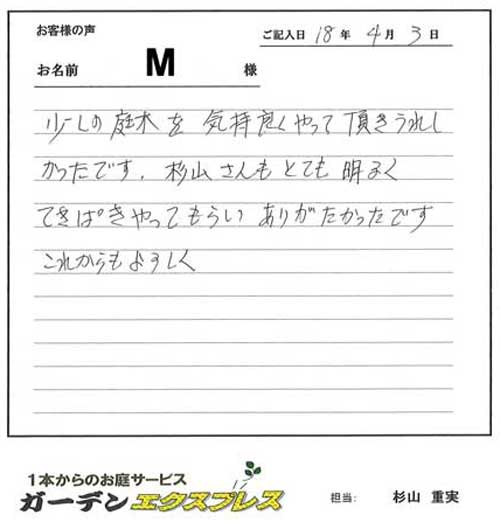 お客様の声
ご記入日 18年 4月 3日
お名前 M 様
少しの庭木を気持良くやって頂きうれし
かったです。杉山さんもとても明るく
てきぱきやってもらいありがたかったです
これからもよろしく
1本からのお庭サービス
ガーデンエクスプレス
担当: 杉山 重実